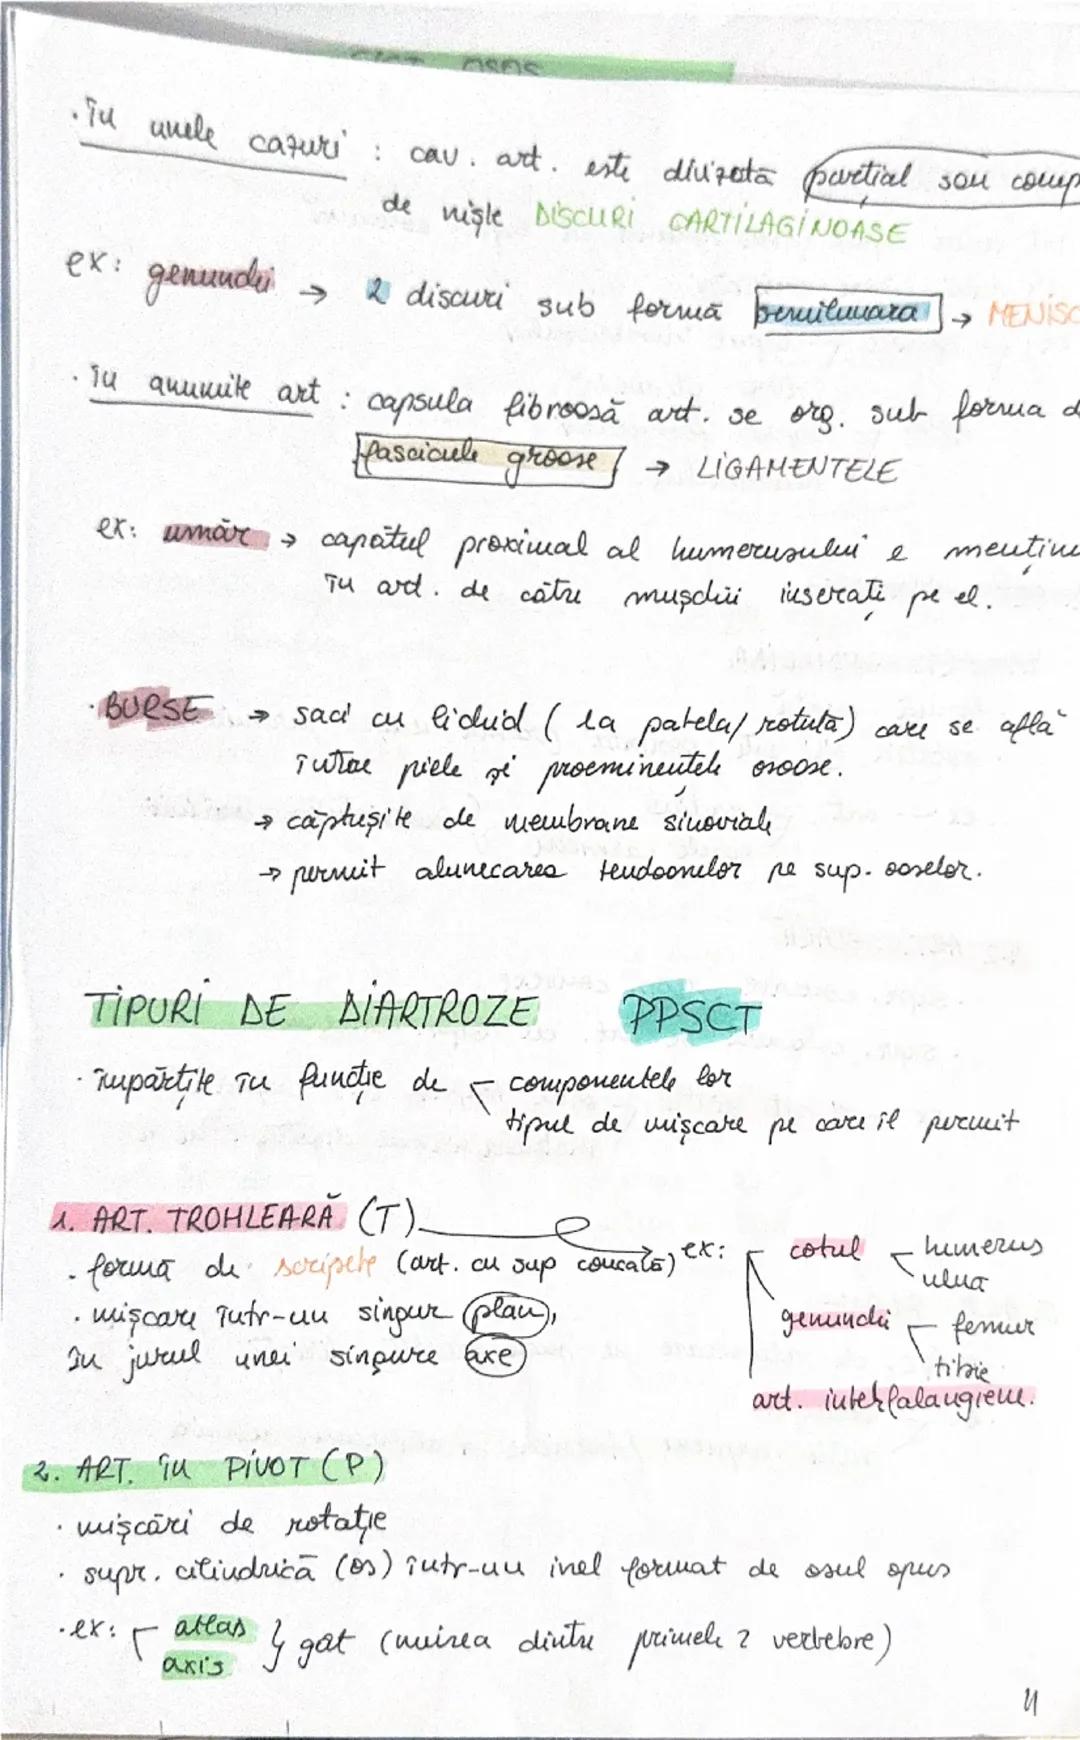 SIST. OSOS
· În unele cazuri : cav. art. este divizată parțial sau comp
de niște DISCURI CARTILAGINOASE
ex: genunchi → 2 discuri sub formă semilunara → MENISC
· În anumite art : capsula fibroosă art. se org. sub forma d
fascicule groose → LIGAMENTELE
ex: umăr → capătul proximal al humerusului e mențin
în ard. de către mușchii inserați pe el.
· BURSE → saci cu lichid ( la patela/ rotulă) care se află
între piele și proeminențele osoose.
→ căptușite de membrane sinoviale
→ permit alunecarea tendoonelor pe sup. ooselor.
TIPURI DE DIARTROZE PPSCT
· împărțite în funcție de componentele lor
tipul de mișcare pe care îl permit
1. ART. TROHLEARĂ (T) ex: cotul humerus
ulna
· formă de scripete (art. cu sup concată)
· mișcare într-un singur plan, genunchi femur
În jurul unei singure axe tibie
art. interfalangiene.
2. ART. în PIVOT (P)
· mișcări de rotație
· supr. cilindrică (os) într-un inel format de osul opus
· ex: atlas
axis } gât (mirea dintre primele 2 vertebre)
4